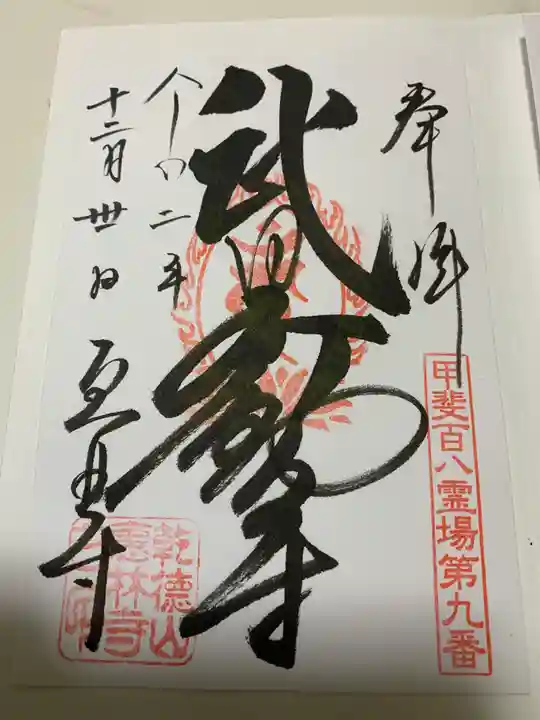 奉拝
甲斐百八霊場第九番
武田不動尊
令和二年
十二月卅日
恵林寺
乾徳山
恵林寺